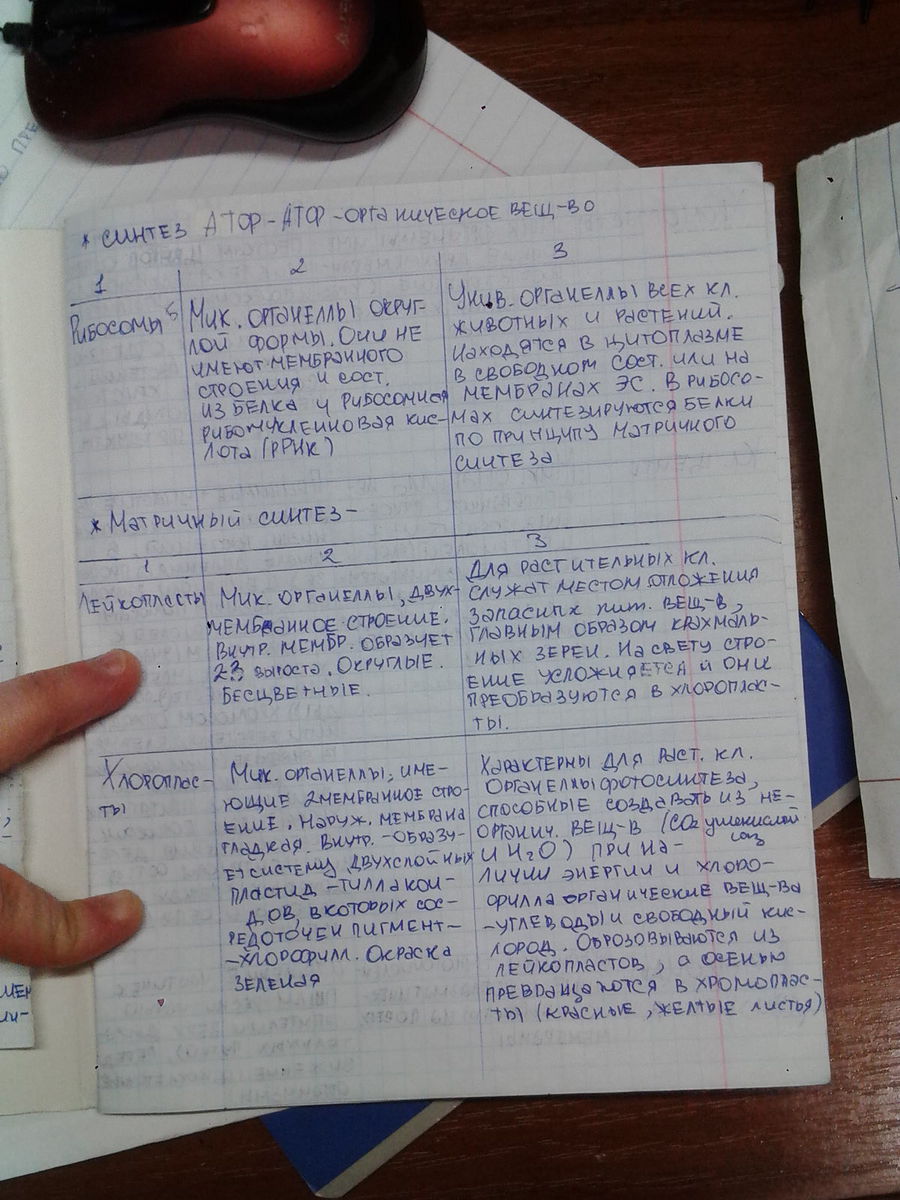 * СИНТЕЗ АТФ-АТФ-ОРГАНИЧЕСКОЕ ВЕЩ-ВО
1 2 3
РИБОСОМЫ
МИК. ОРГАНЕЛЛЫ ОКРУГ-
ЛОЙ ФОРМЫ. ОНИ НЕ
ИМЕЮТ МЕМБРАННОГО
СТРОЕНИЯ И СОСТ.
ИЗ БЕЛКА И РИБОСОМНАЯ
РИБОНУКЛЕИНОВАЯ КИС-
ЛОТА (РРНК)
УНИВ. ОРГАНЕЛЛЫ ВСЕХ КЛ.
ЖИВОТНЫХ И РАСТЕНИЙ.
НАХОДЯТСЯ В ЦИТОПЛАЗМЕ
В СВОБОДНОМ СОСТ. ИЛИ НА
МЕМБРАНАХ ЭС. В РИБОСО-
МАХ СИНТЕЗИРУЮТСЯ БЕЛКИ
ПО ПРИНЦИПУ МАТРИЧНОГО
СИНТЕЗА
* МАТРИЧНЫЙ СИНТЕЗ-
1 2 3
ЛЕЙКОПЛАСТЫ
МИК. ОРГАНЕЛЛЫ, ДВУХ-
МЕМБРАННОЕ СТРОЕНИЕ.
ВНУТР. МЕМБР. ОБРАЗУЕТ
2-3 выроста. ОКРУГЛЫЕ.
БЕСЦВЕТНЫЕ.
ДЛЯ РАСТИТЕЛЬНЫХ КЛ.
СЛУЖАТ МЕСТОМ ОТЛОЖЕНИЯ
ЗАПАСНЫХ ПИТ. ВЕЩ-В,
ГЛАВНЫМ ОБРАЗОМ КРАХМАЛЬ-
НЫХ ЗЕРЕН. НА СВЕТУ СТРО-
ЕНИЕ УСЛОЖНЯЕТСЯ И ОНИ
ПРЕОБРАЗУЮТСЯ В ХЛОРОПЛАС-
ТЫ.
ХЛОРОПЛАС-
ТЫ
МИК. ОРГАНЕЛЛЫ, ИМЕ-
ЮЩИЕ 2МЕМБРАННОЕ СТРО-
ЕНИЕ. НАРУЖ. МЕМБРАНА
ГЛАДКАЯ. ВНУТР.-ОБРАЗУ-
ЕТ СИСТЕМУ ДВУХСЛОЙНЫХ
ПЛАСТИД -ТИЛЛАКОИ-
ДОВ, В КОТОРЫХ СОС-
РЕДОТОЧЕН ПИГМЕНТ-
-ХЛОРОФИЛЛ. ОКРАСКА
ЗЕЛЕНАЯ
ХАРАКТЕРНЫ ДЛЯ РАСТ. КЛ.
ОРГАНЕЛЛЫ ФОТОСИНТЕЗА,
СПОСОБНЫЕ СОЗДАВАТЬ ИЗ НЕ-
ОРГАНИЧ. ВЕЩ-В (CO2 углекислый
газ
И H2O) ПРИ НА-
ЛИЧИИ ЭНЕРГИИ И ХЛОРО-
ФИЛЛА ОРГАНИЧЕСКИЕ ВЕЩ-ВА
-УГЛЕВОДЫ И СВОБОДНЫЙ КИС-
ЛОРОД. ОБРОЗОВЫВАЮТСЯ ИЗ
ЛЕЙКОПЛАСТОВ, А ОСЕНЬЮ
ПРЕВРАЩАЮТСЯ В ХРОМОПЛАС-
ТЫ (КРАСНЫЕ, ЖЕЛТЫЕ ЛИСТЬЯ)